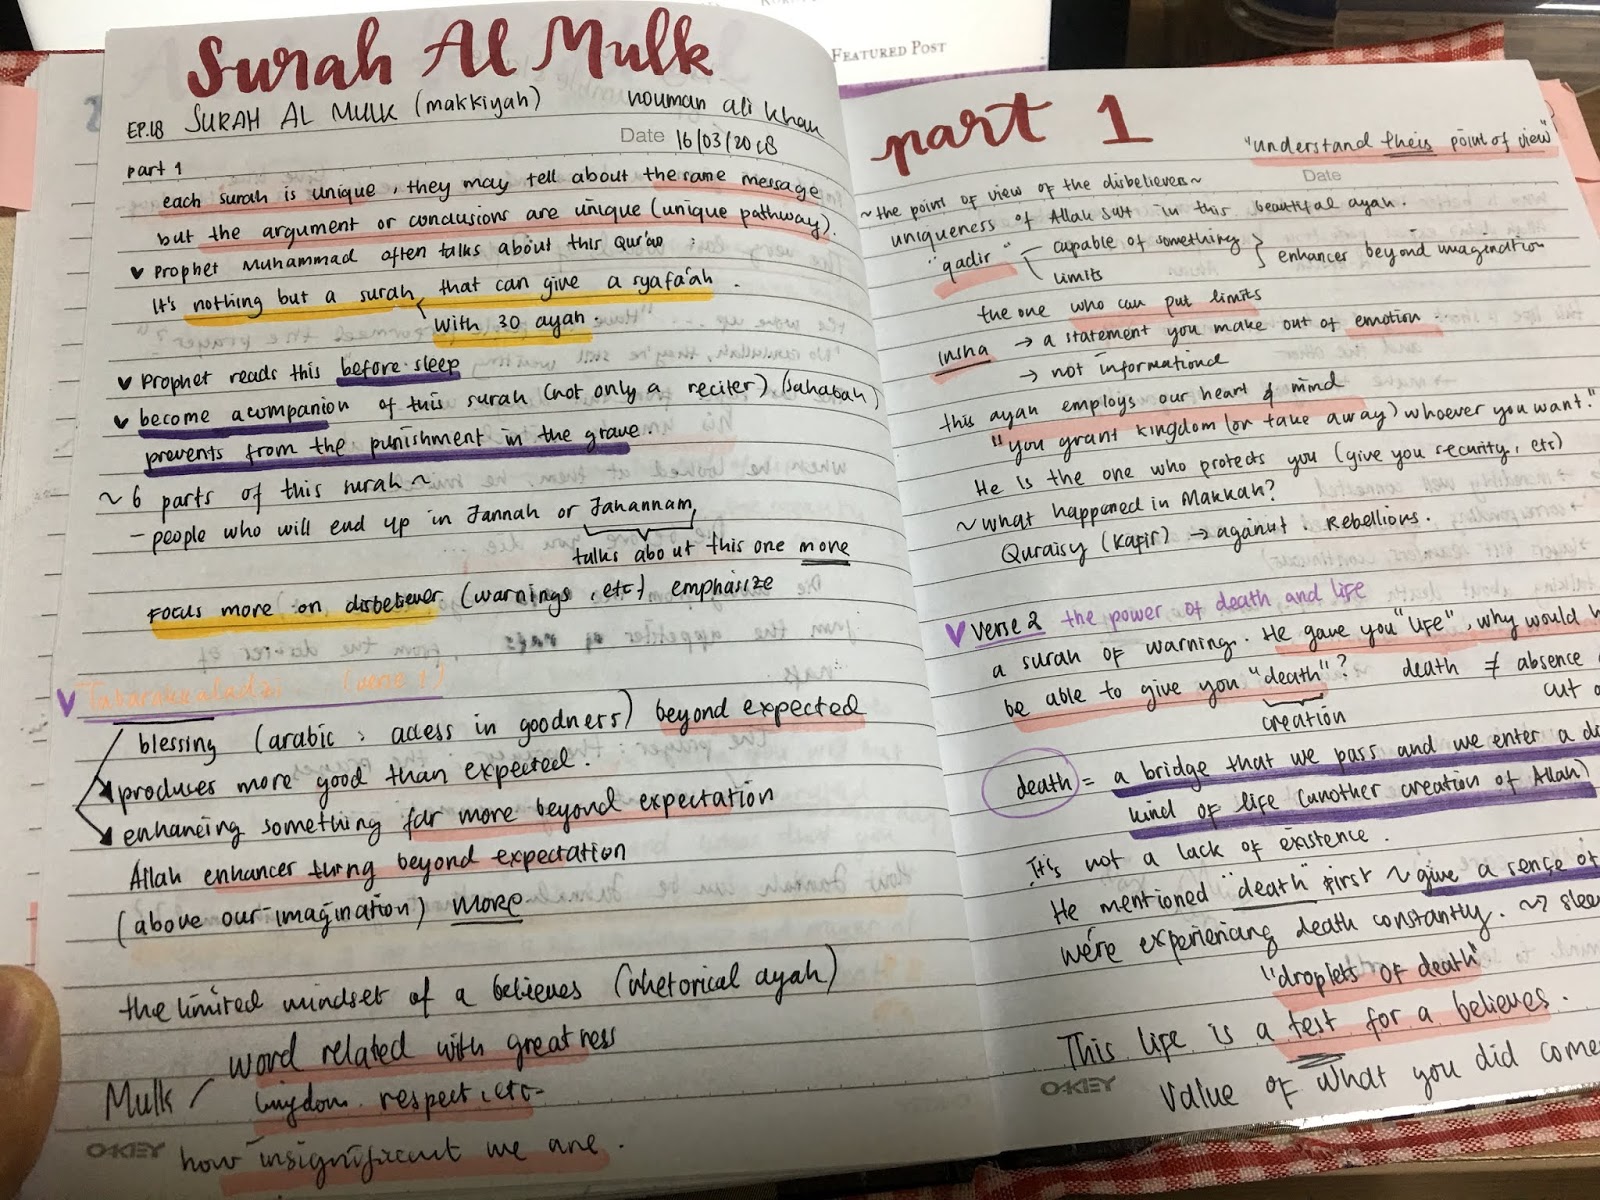 FEATURED POST
Surah Al Mulk
EP.18 SURAH AL MULK (makkiyah) nouman ali khan
Date 16/03/2018
part 1
each surah is unique, they may tell about the same message
but the argument or conclusions are unique (unique pathway).
Prophet Muhammad often talks about this Qur'an :
It's nothing but a surah that can give a syafa'ah .
with 30 ayah.
Prophet reads this before sleep
become a companion of this surah (not only a reciter) (sahabah)
prevents from the punishment in the grave.
~ 6 parts of this surah ~
- people who will end up in Jannah or Jahannam,
talks about this one more
Focus more on disbeliever (warnings, etc) emphasize
Tabarakkaladzi (verse 1)
blessing (arabic : access in goodness) beyond expected
produces more good than expected.
enhancing something far more beyond expectation
Allah enhancer turng beyond expectation
(above our imagination) more
the limited mindset of a believes (rhetorical ayah)
word related with greatness
Mulk / kingdom. respect, etc-
how insignificant we are.
OKEY
part 1
"understand theis point of view"
Date
~ the point of view of the disbelievers ~
uniqueness of Allah swt in this beautiful ayah.
"qadir" capable of something } enhancer beyond imagination
limits
the one who can put limits
insha → a statement you make out of emotion
→ not informational
this ayah employs our heart & mind
"you grant kingdom (or take away) whoever you want."
He is the one who protects you (give you security, etc)
~ what happened in Makkah?
Quraisy (Kafir) → against. Rebellions.
Verse 2 the power of death and life
a surah of warning. He gave you "life", why would
be able to give you "death"? death ≠ absence
creation cut
death = a bridge that we pass and we enter a
kind of life (another creation of Allah)
It's not a lack of existence.
He mentioned "death" first ~ give a sense of
we're experiencing death constantly.
"droplets of death"
This life is a test for a believes.
OKEY
Value of what you did come